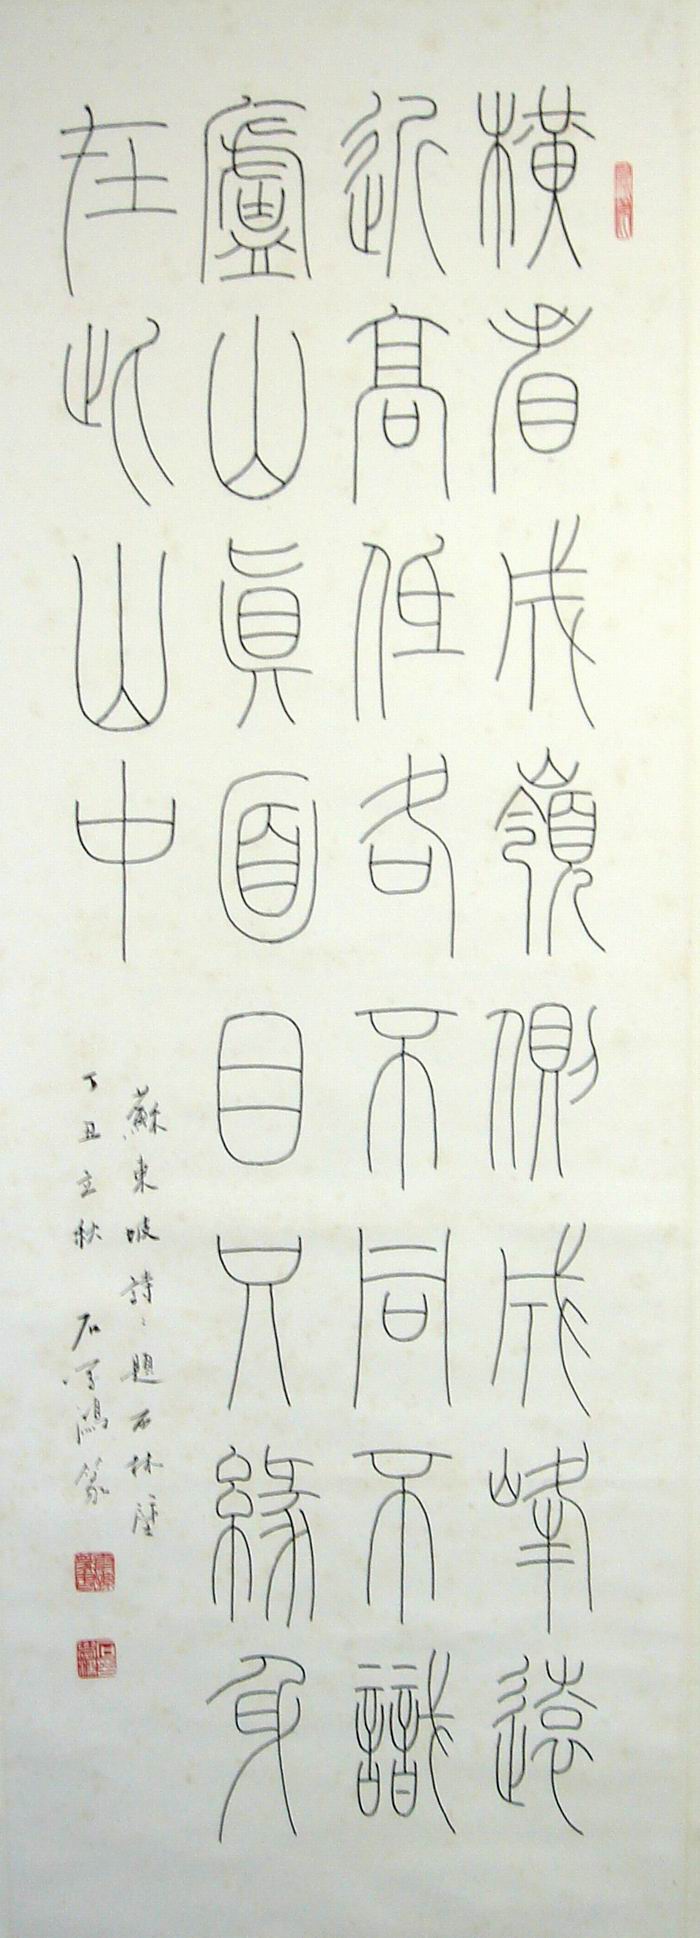 橫看成嶺側成峰遠
近高低各不同不識
廬山眞面目只緣身
在此山中
蘇東坡詩題西林壁
丁丑立秋 石鴻篆